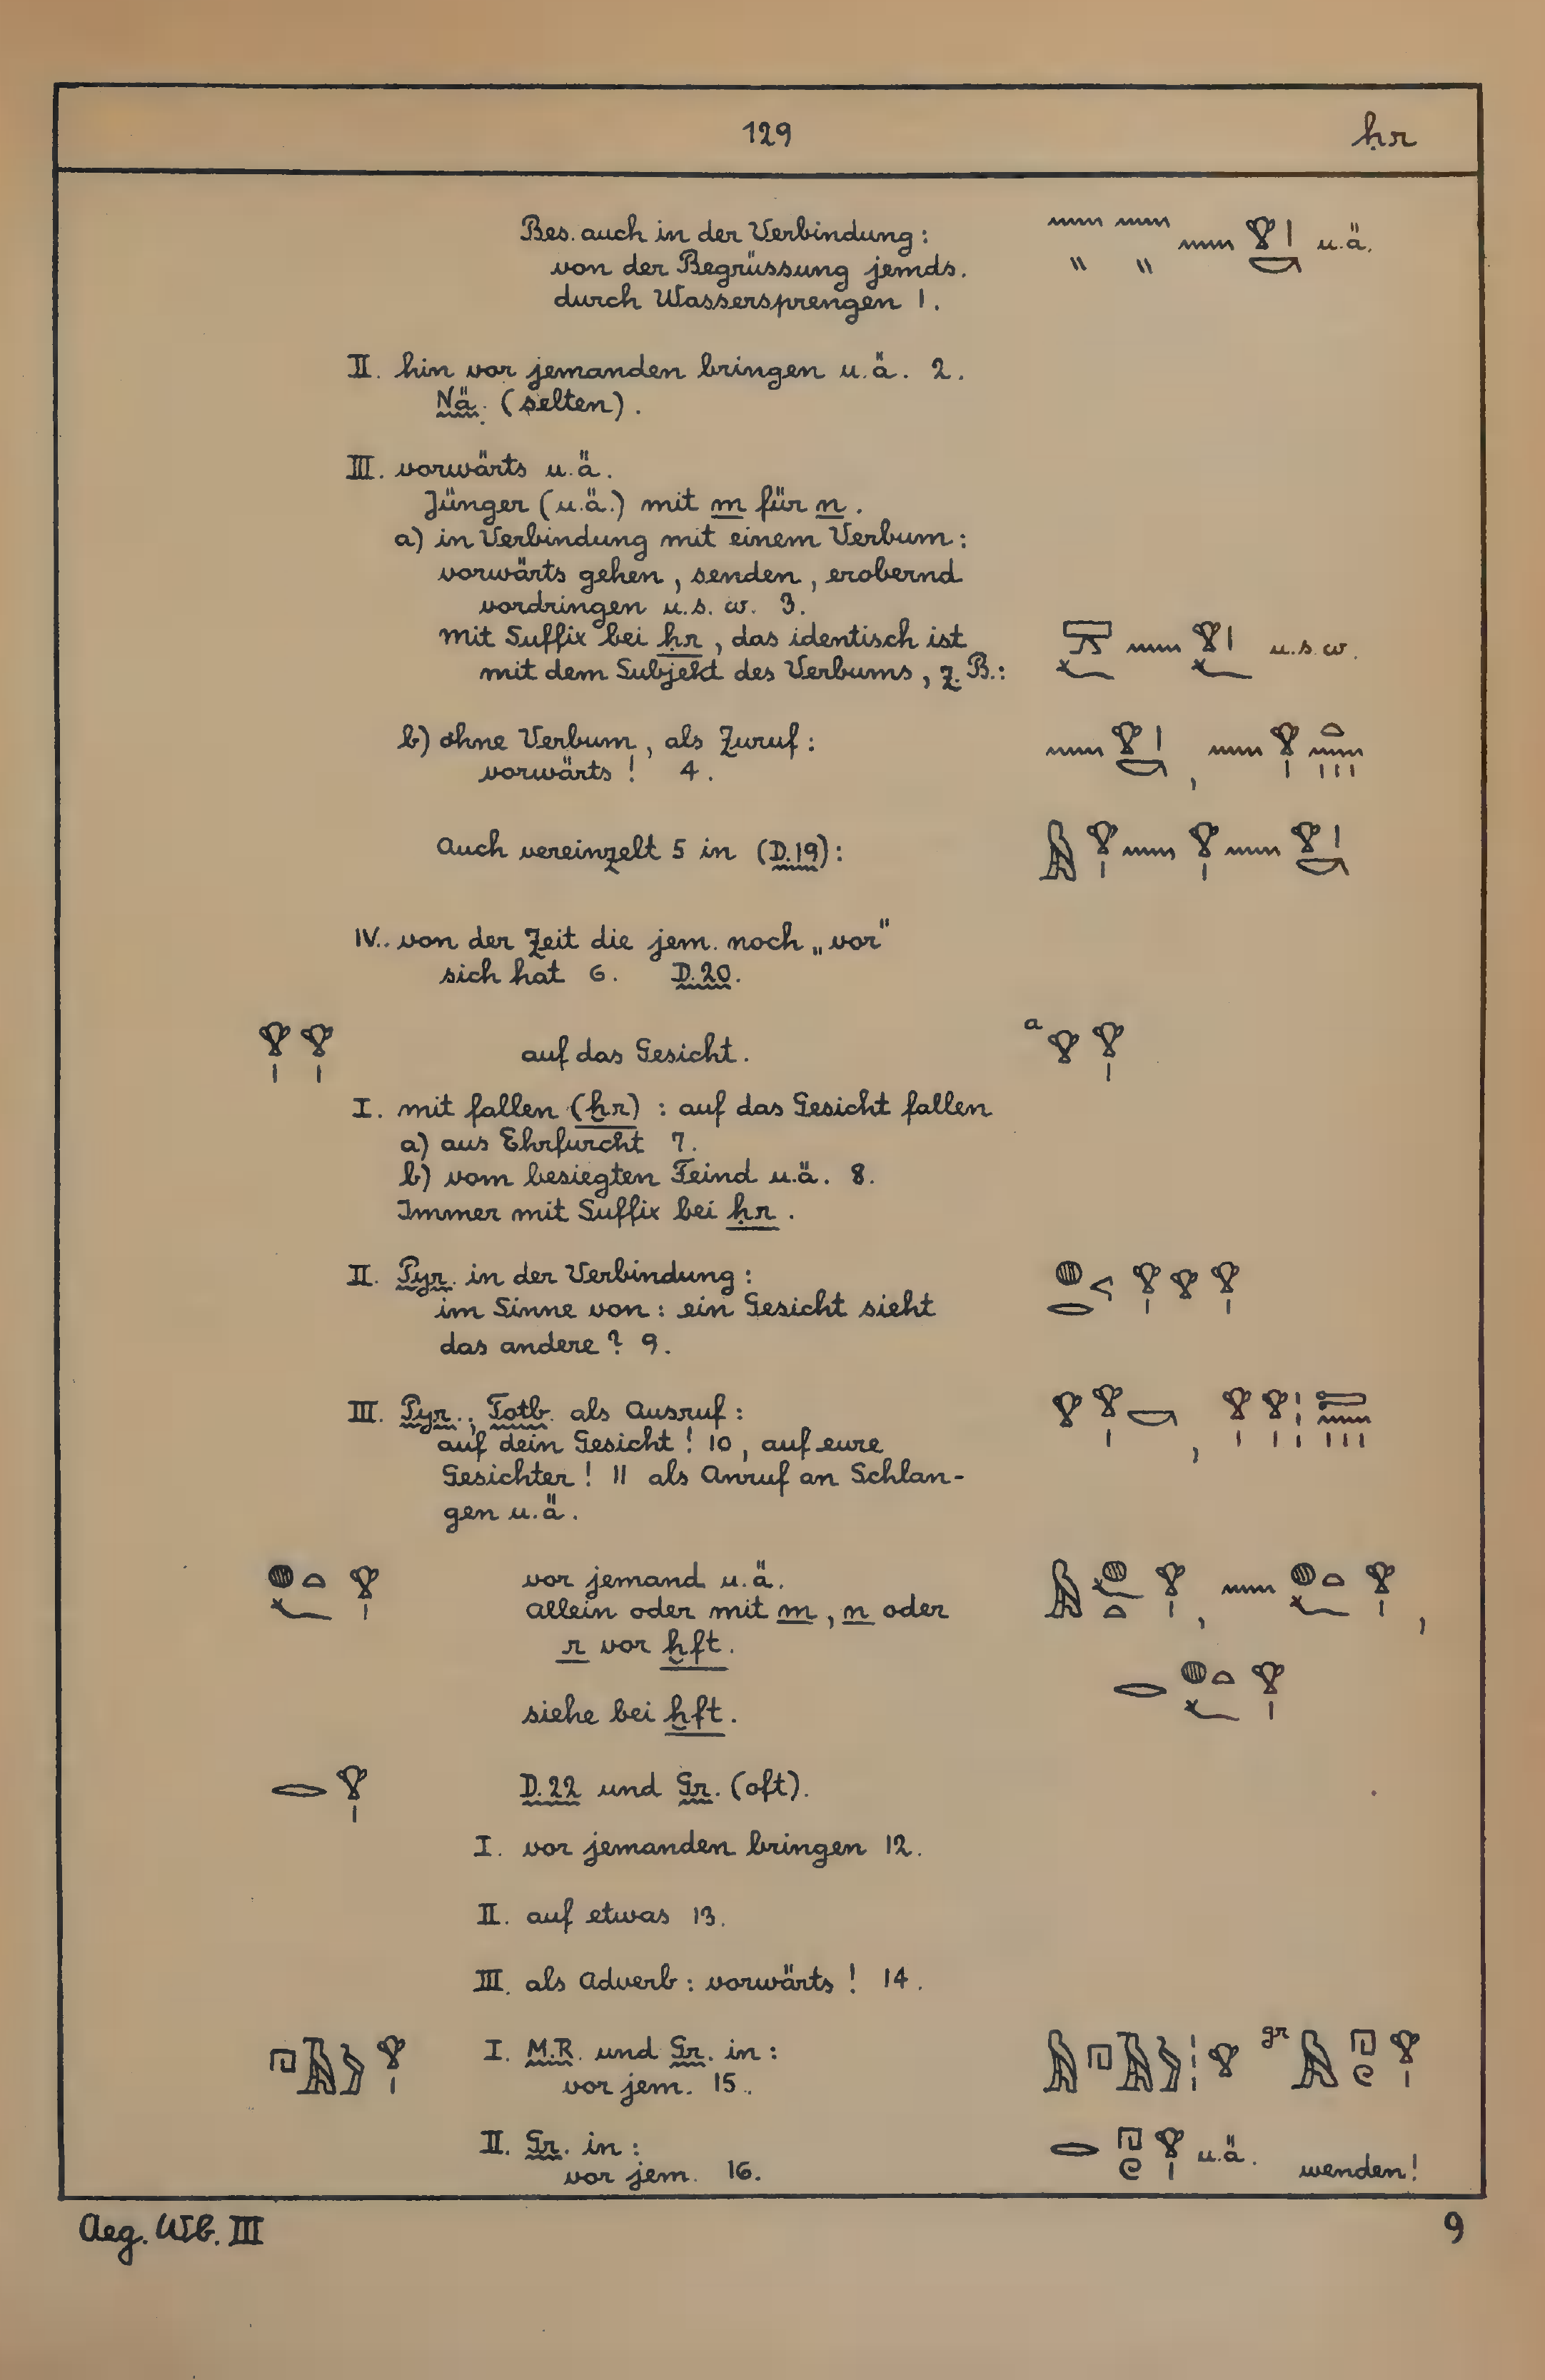 129 ḥr
Bes. auch in der Verbindung: 𓈖𓈖 𓈖𓁷𓏤𓎡 u.ä.
von der Begrüssung jemds. " "
durch Wassersprengen 1.
II. hin vor jemanden bringen u.ä. 2.
Nä. (selten).
III. vorwärts u.ä.
Jünger (u.ä.) mit m für n.
a) in Verbindung mit einem Verbum:
vorwärts gehen, senden, erobernd
vordringen u.s.w. 3.
mit Suffix bei ḥr, das identisch ist u.s.w.
mit dem Subjekt des Verbums, z.B.:
b) ohne Verbum, als Zuruf: 𓈖𓁷𓏤𓎡, 𓈖𓁷𓏤𓏏𓈖𓏥
vorwärts! 4.
Auch vereinzelt 5 in (D.19): 𓅓𓁷𓏤𓈖𓁷𓏤𓈖𓁷𓏤𓎡
IV. von der Zeit die jem. noch „vor"
sich hat 6. D.20.
𓁷𓏤𓁷𓏤 auf das Gesicht. a 𓁷𓁷𓏤
I. mit fallen (ḫr): auf das Gesicht fallen
a) aus Ehrfurcht 7.
b) vom besiegten Feind u.ä. 8.
Immer mit Suffix bei ḥr.
II. Pyr. in der Verbindung:
im Sinne von: ein Gesicht sieht
das andere? 9.
III. Pyr., Totb. als Ausruf:
auf dein Gesicht! 10, auf eure
Gesichter! 11 als Anruf an Schlan-
gen u.ä.
𓐍𓏏𓆑𓁷𓏤 vor jemand u.ä. 𓅓𓐍𓆑𓏏𓁷𓏤, 𓈖𓐍𓏏𓆑𓁷𓏤,
allein oder mit m, n oder
r vor ḫft. 𓂋𓐍𓏏𓆑𓁷𓏤
siehe bei ḫft.
𓂋𓁷𓏤 D.22 und Gr. (oft).
I. vor jemanden bringen 12.
II. auf etwas 13.
III. als Adverb: vorwärts! 14.
𓉔𓅓𓅱𓁷𓏤 I. M.R. und Gr. in: gr
vor jem. 15.
II. Gr. in: 𓂋𓉔𓏲𓁷𓏤 u.ä. wenden!
vor jem. 16.
Aeg. Wb. III 9